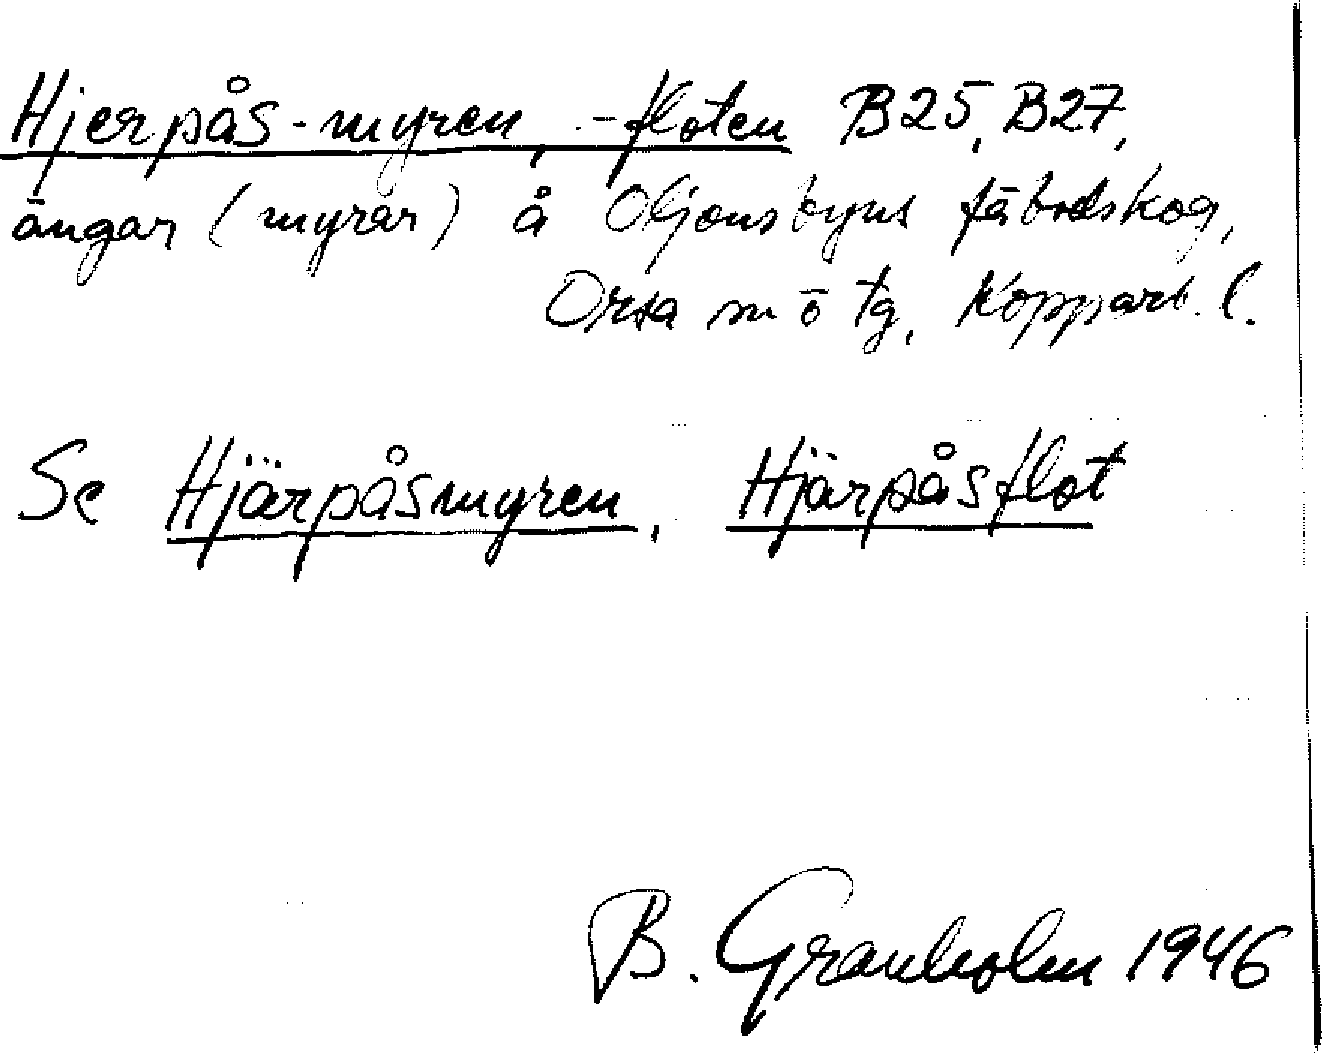 Hjerpås-myren, -floten B25, B27,
ängar (myrar) å Oljonsbyns fäbodskog,
Orsa m o tg, Kopparb. l.
Se Hjärpåsmyren, Hjärpåsflot
B. Granholm 1946